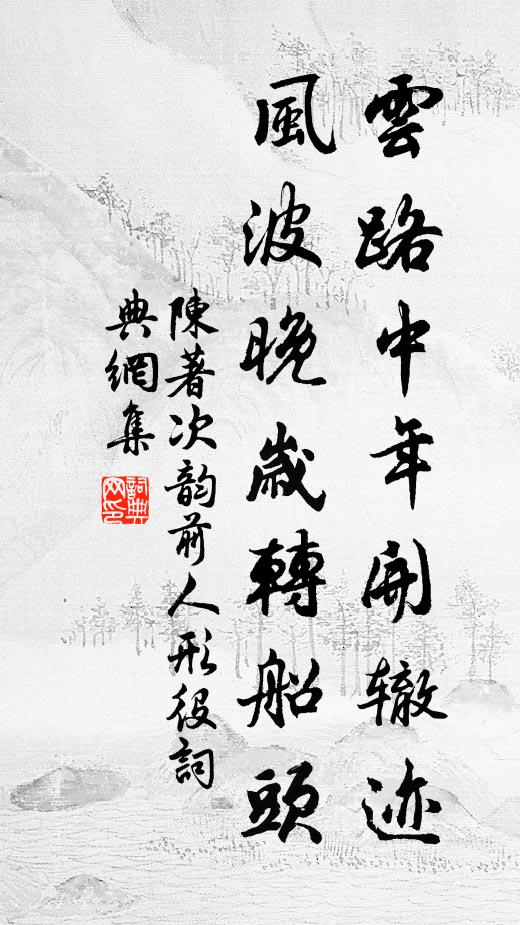 雲路中年開辙迹
風波晚歲轉船頭
陳著次韵前人形役詞
典網集
詞典
网印